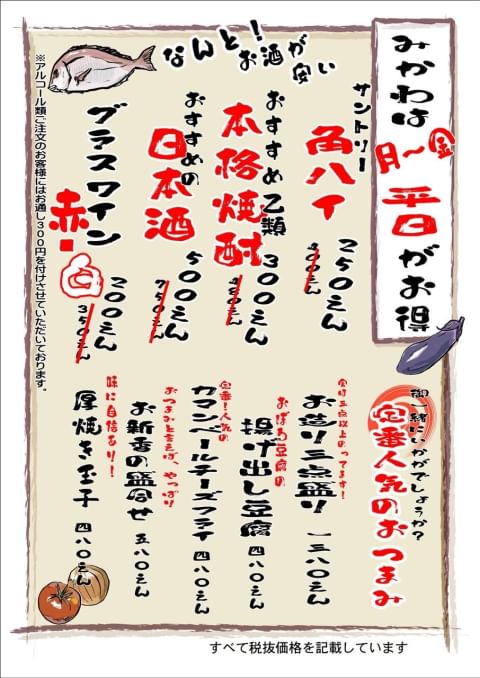 みかわは
月～金
平日がお得
なんと！
お酒が
安い
サントリー
角ハイ
250えん
400えん
おすすめ乙類
本格焼酎
300えん
480えん
おすすめの
日本酒
500えん
750えん
グラスワイン
赤・白
200えん
350えん
※アルコール類ご注文のお客様にはお通し300円を付けさせていただいております。
御一緒にいかがでしょうか？
定番人気のおつまみ
実は三点以上のってます！
お造り三点盛り 一三八〇えん
おぼろ豆腐の
揚げ出し豆腐 四八〇えん
定番！人気の
カマンベールチーズフライ 四八〇えん
おつまみと言えば、やっぱり
お新香の盛合せ 五八〇えん
味に自信あり！
厚焼き玉子 四八〇えん
すべて税抜価格を記載しています